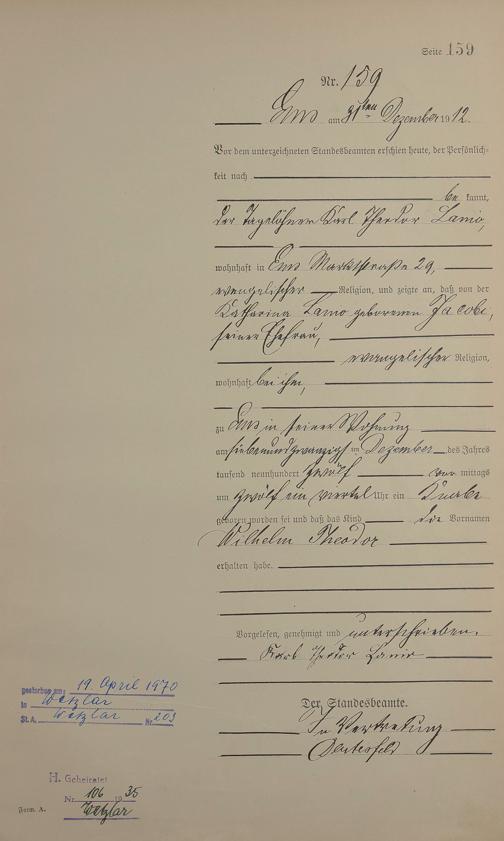 Seite 159
Nr. 159
Ems am 31ten Dezember 1912.
Vor dem unterzeichneten Standesbeamten erschien heute, der Persönlich-
keit nach
be kannt,
der Tagelöhner Karl Theodor Lanio,
wohnhaft in Ems Marktstraße 29,
evangelischer Religion, und zeigte an, daß von der
Katharina Lanio geborenen Jacobi,
seiner Ehefrau,
evangelischer Religion,
wohnhaft bei ihm,
zu Ems in seiner Wohnung
am siebenundzwanzigsten Dezember des Jahres
tausend neunhundert zwölf vor mittags
um zwölf ein viertel Uhr ein Knabe
geboren worden sei und daß das Kind die Vornamen
Wilhelm Theodor
erhalten habe.
Vorgelesen, genehmigt und unterschrieben.
Karl Theodor Lanio
gestorben am: 19. April 1970
in Wetzlar
St. A. Wetzlar Nr. 203
Der Standesbeamte.
In Vertretung
H. Geheiratet
Nr. 106 1935
Wetzlar
Form. A.